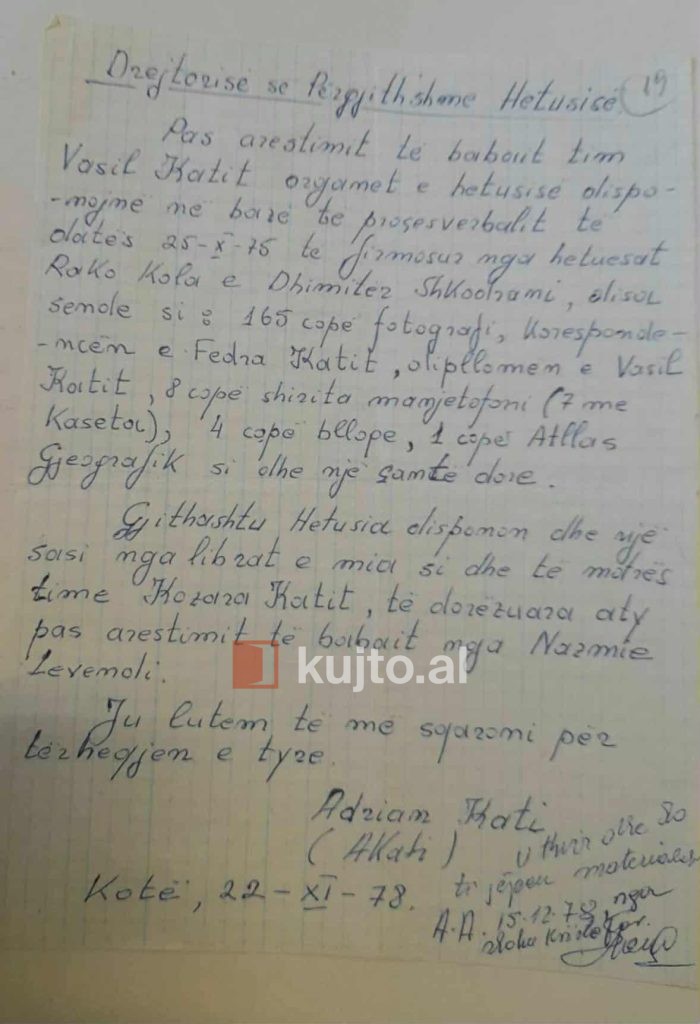 Drejtorisë se Përgjithshme Hetusisë
19
Pas arestimit të babait tim
Vasil Katit organet e hetusisë dispo-
-nojnë në bazë të prosesverbalit të
datës 25-X-75 te firmosur nga hetuesat
Rako Kola e Dhimiter Shkodrani, disa
sende si : 165 copë fotografi, koresponde-
-ncën e Fedra Katit, dipllomen e Vasil
Katit, 8 copë shirita manjetofoni (7 me
Kaseta), 4 copë bllope, 1 copë Atllas
Gjeografik si dhe një çantë dore.
Gjithashtu Hetusia disponon dhe një
sasi nga librat e mia si dhe të motrës
time Kozara Katit, të dorëzuara aty
pas arestimit të babait nga Nazmie
Levendi.
kujto.al
Ju lutem të më sqaroni për
tërheqjen e tyre.
Adrian Kati
(AKati)
U thirr dhe
ti jepen materialet
Kotë, 22-XI-78.
A.A. 15.12.78, nga